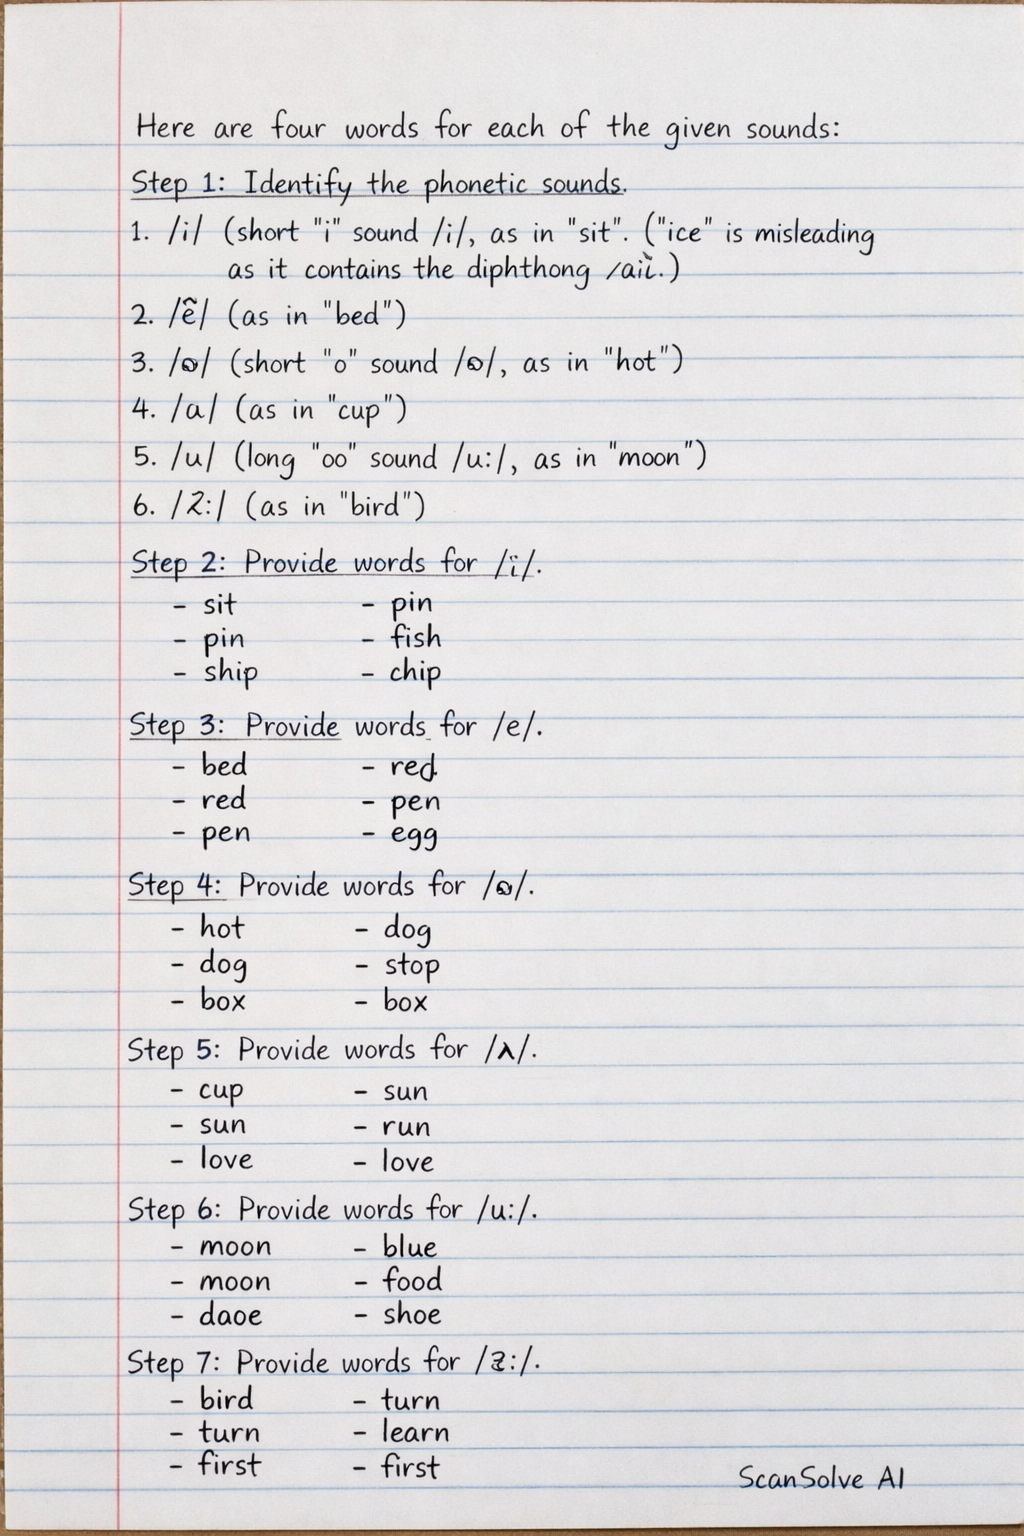 Here are four words for each of the given sounds:
Step 1: Identify the phonetic sounds.
1. /i/ (short "i" sound /i/, as in "sit". ("ice" is misleading
as it contains the diphthong /aì.)
2. /ẽ/ (as in "bed")
3. /ɷ/ (short "o" sound /ɷ/, as in "hot")
4. /a/ (as in "cup")
5. /u/ (long "oo" sound /u:/, as in "moon")
6. /2:/ (as in "bird")
Step 2: Provide words for /ï/.
- sit - pin
- pin - fish
- ship - chip
Step 3: Provide words for /e/.
- bed - red
- red - pen
- pen - egg
Step 4: Provide words for /ɷ/.
- hot - dog
- dog - stop
- box - box
Step 5: Provide words for /λ/.
- cup - sun
- sun - run
- love - love
Step 6: Provide words for /u:/.
- moon - blue
- moon - food
- daoe - shoe
Step 7: Provide words for /ƨ:/.
- bird - turn
- turn - learn
- first - first
ScanSolve AI